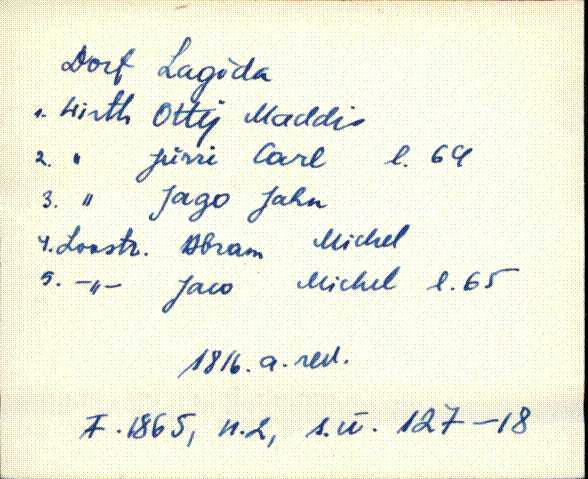 Dorf Lagĕda
1. Wirth Ottej Maddis
2. " Jürri Carl l. 64
3. " Jago Jahn
4. Loostr. Abram Michel
5. —"— Jaco Michel l. 65
1816. a. rev.
F. 1865, n. 2, s. ü. 127—18